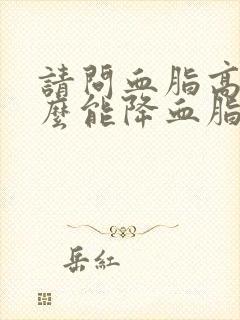 請問血脂高
麼能降血脂
岳紅